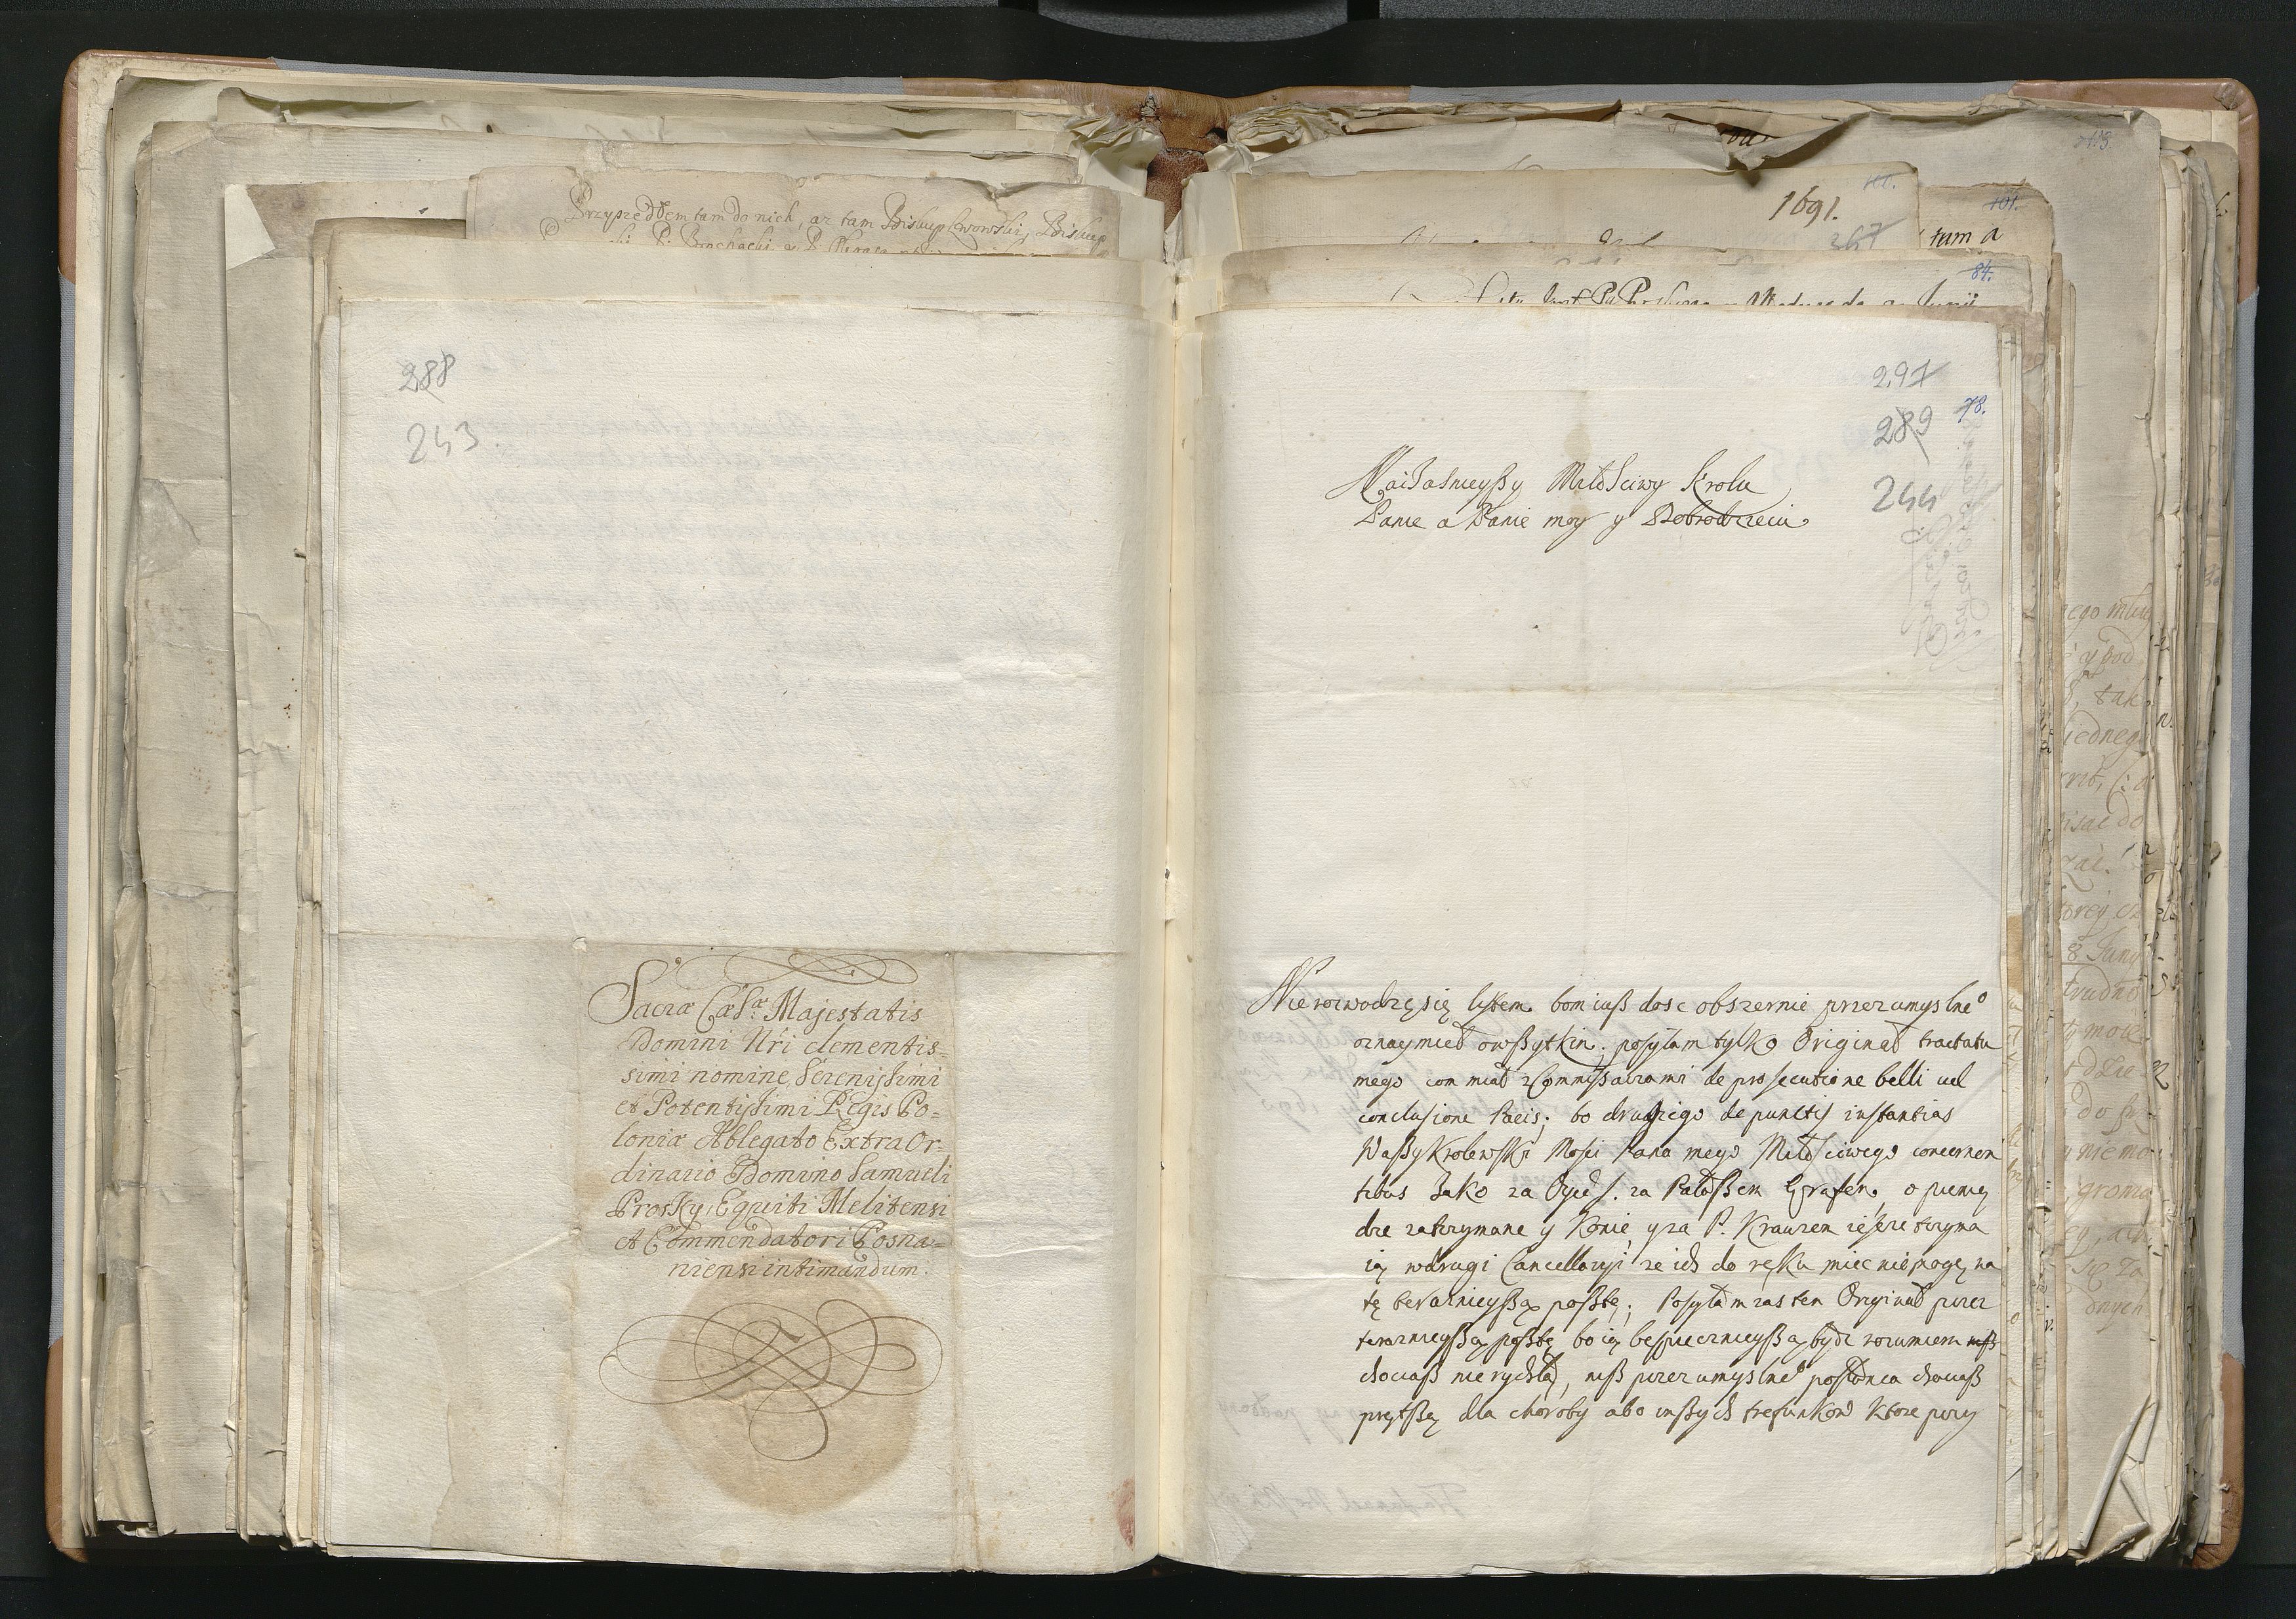 Przyszedłem tam do nich, az tam Biskup Lwowski, Biskup
288
243.
Sacræ Cæs.æ Majestatis
Domini Nri clementis=
simi nomine, Serenissimi
et Potentissimi Regis Po=
loniæ Ablegato Extraor=
dinario Domino Samueli
Prosky, Equiti Melitensi
et Commendatori Posna=
niensi intimandum.
1691.
367
tum a
101.
84.
297
289
78.
244
Naiiasnieyszy Miłosciwy Krolu
Panie a Panie moy y Dobrodzieiu
Nie rozwodzę się listem bom iusz dosc obszernie przez umyslne°
oznaymieł owszytkim; posyłam tylko Originał tractatu
mego com miał z Commissarzami de prosecutione belli uel
conclusione Pacis; bo drugiego de punctis instantias
Waszy Krolewski Mosci Pana mego Miłosciwego concernen
tibus Jako za Oyc S. za Pałaszem Grafem, o pienią
dze zatrzymane y Konie, y za P. Krauzem ieszcze trzyma
ią w drugi Cancellaryi ze ich do ręku miec nie mogę na
tę terazniejszą posztę; Posyłam zas ten Oryginał przez
terazniejszą posztę bo ią bespiecznieyszą bydz rozumiem nisz
chociasz nierychłą, nisz przez umyslne° posłanca chociasz
prętszą dla choroby abo inszych trefunkow ktore przy